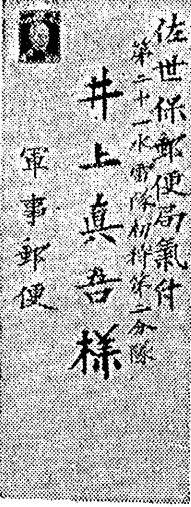 佐世保郵便局氣付
第二十一水雷隊 第二分隊
井上真吾様
軍事郵便